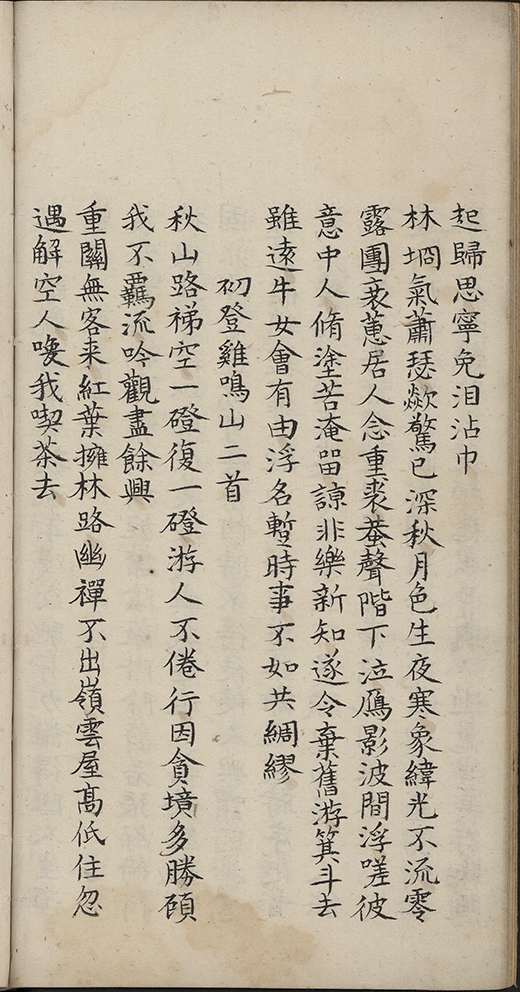 起歸思寧免泪沾巾
林坰氣蕭瑟歘驚已深秋月色生夜寒象緯光不流零
露團衰蕙居人念重裘蛬聲階下泣鴈影波間浮嗟彼
意中人脩塗苦淹畱諒非樂新知遂令棄舊游箕斗去
雖遠牛女會有由浮名蹔時事不如共綢繆
初登雞鳴山二首
秋山路梯空一磴復一磴游人不倦行因貪境多勝頎
我不羈流吟觀盡餘興
重關無客来紅葉擁林路幽禪不出嶺雲屋髙低住忽
遇解空人喚我喫茶去